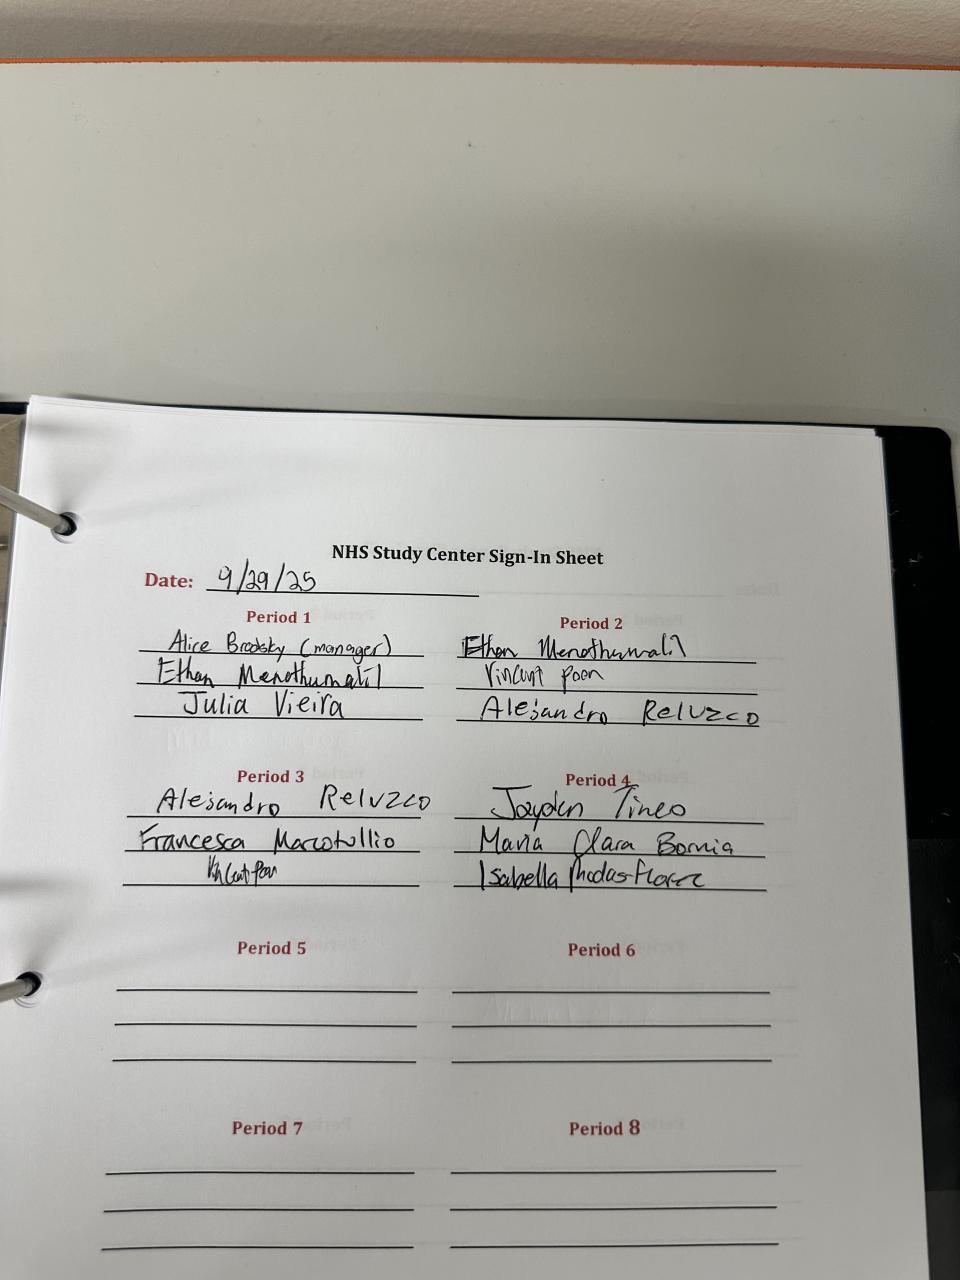 NHS Study Center Sign-In Sheet
Date: 9/29/25
Period 1
Alice Brodsky (manager)
Ethan Menothumalil
Julia Vieira
Period 2
Ethan Menothumalil
Vincent Poon
Alejandro Reluzco
Period 3
Alejandro Reluzco
Francesca Marcotullio
Vincent Poon
Period 4
Jayden Tineo
Maria Clara Bornia
Isabella Rhodas-Florez
Period 5
Period 6
Period 7
Period 8